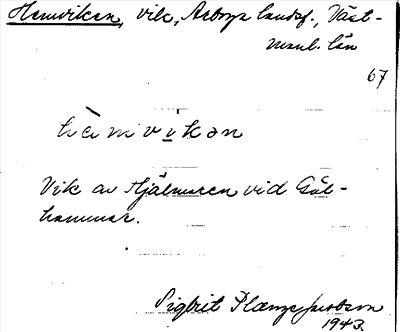 Hemviken, vik, Arboga landsf., Väst-
manl. län
67
hèmvikən
Vik av Hjälmaren vid Göl-
hammar.
Sigbrit Plænge Jacobson
1943.